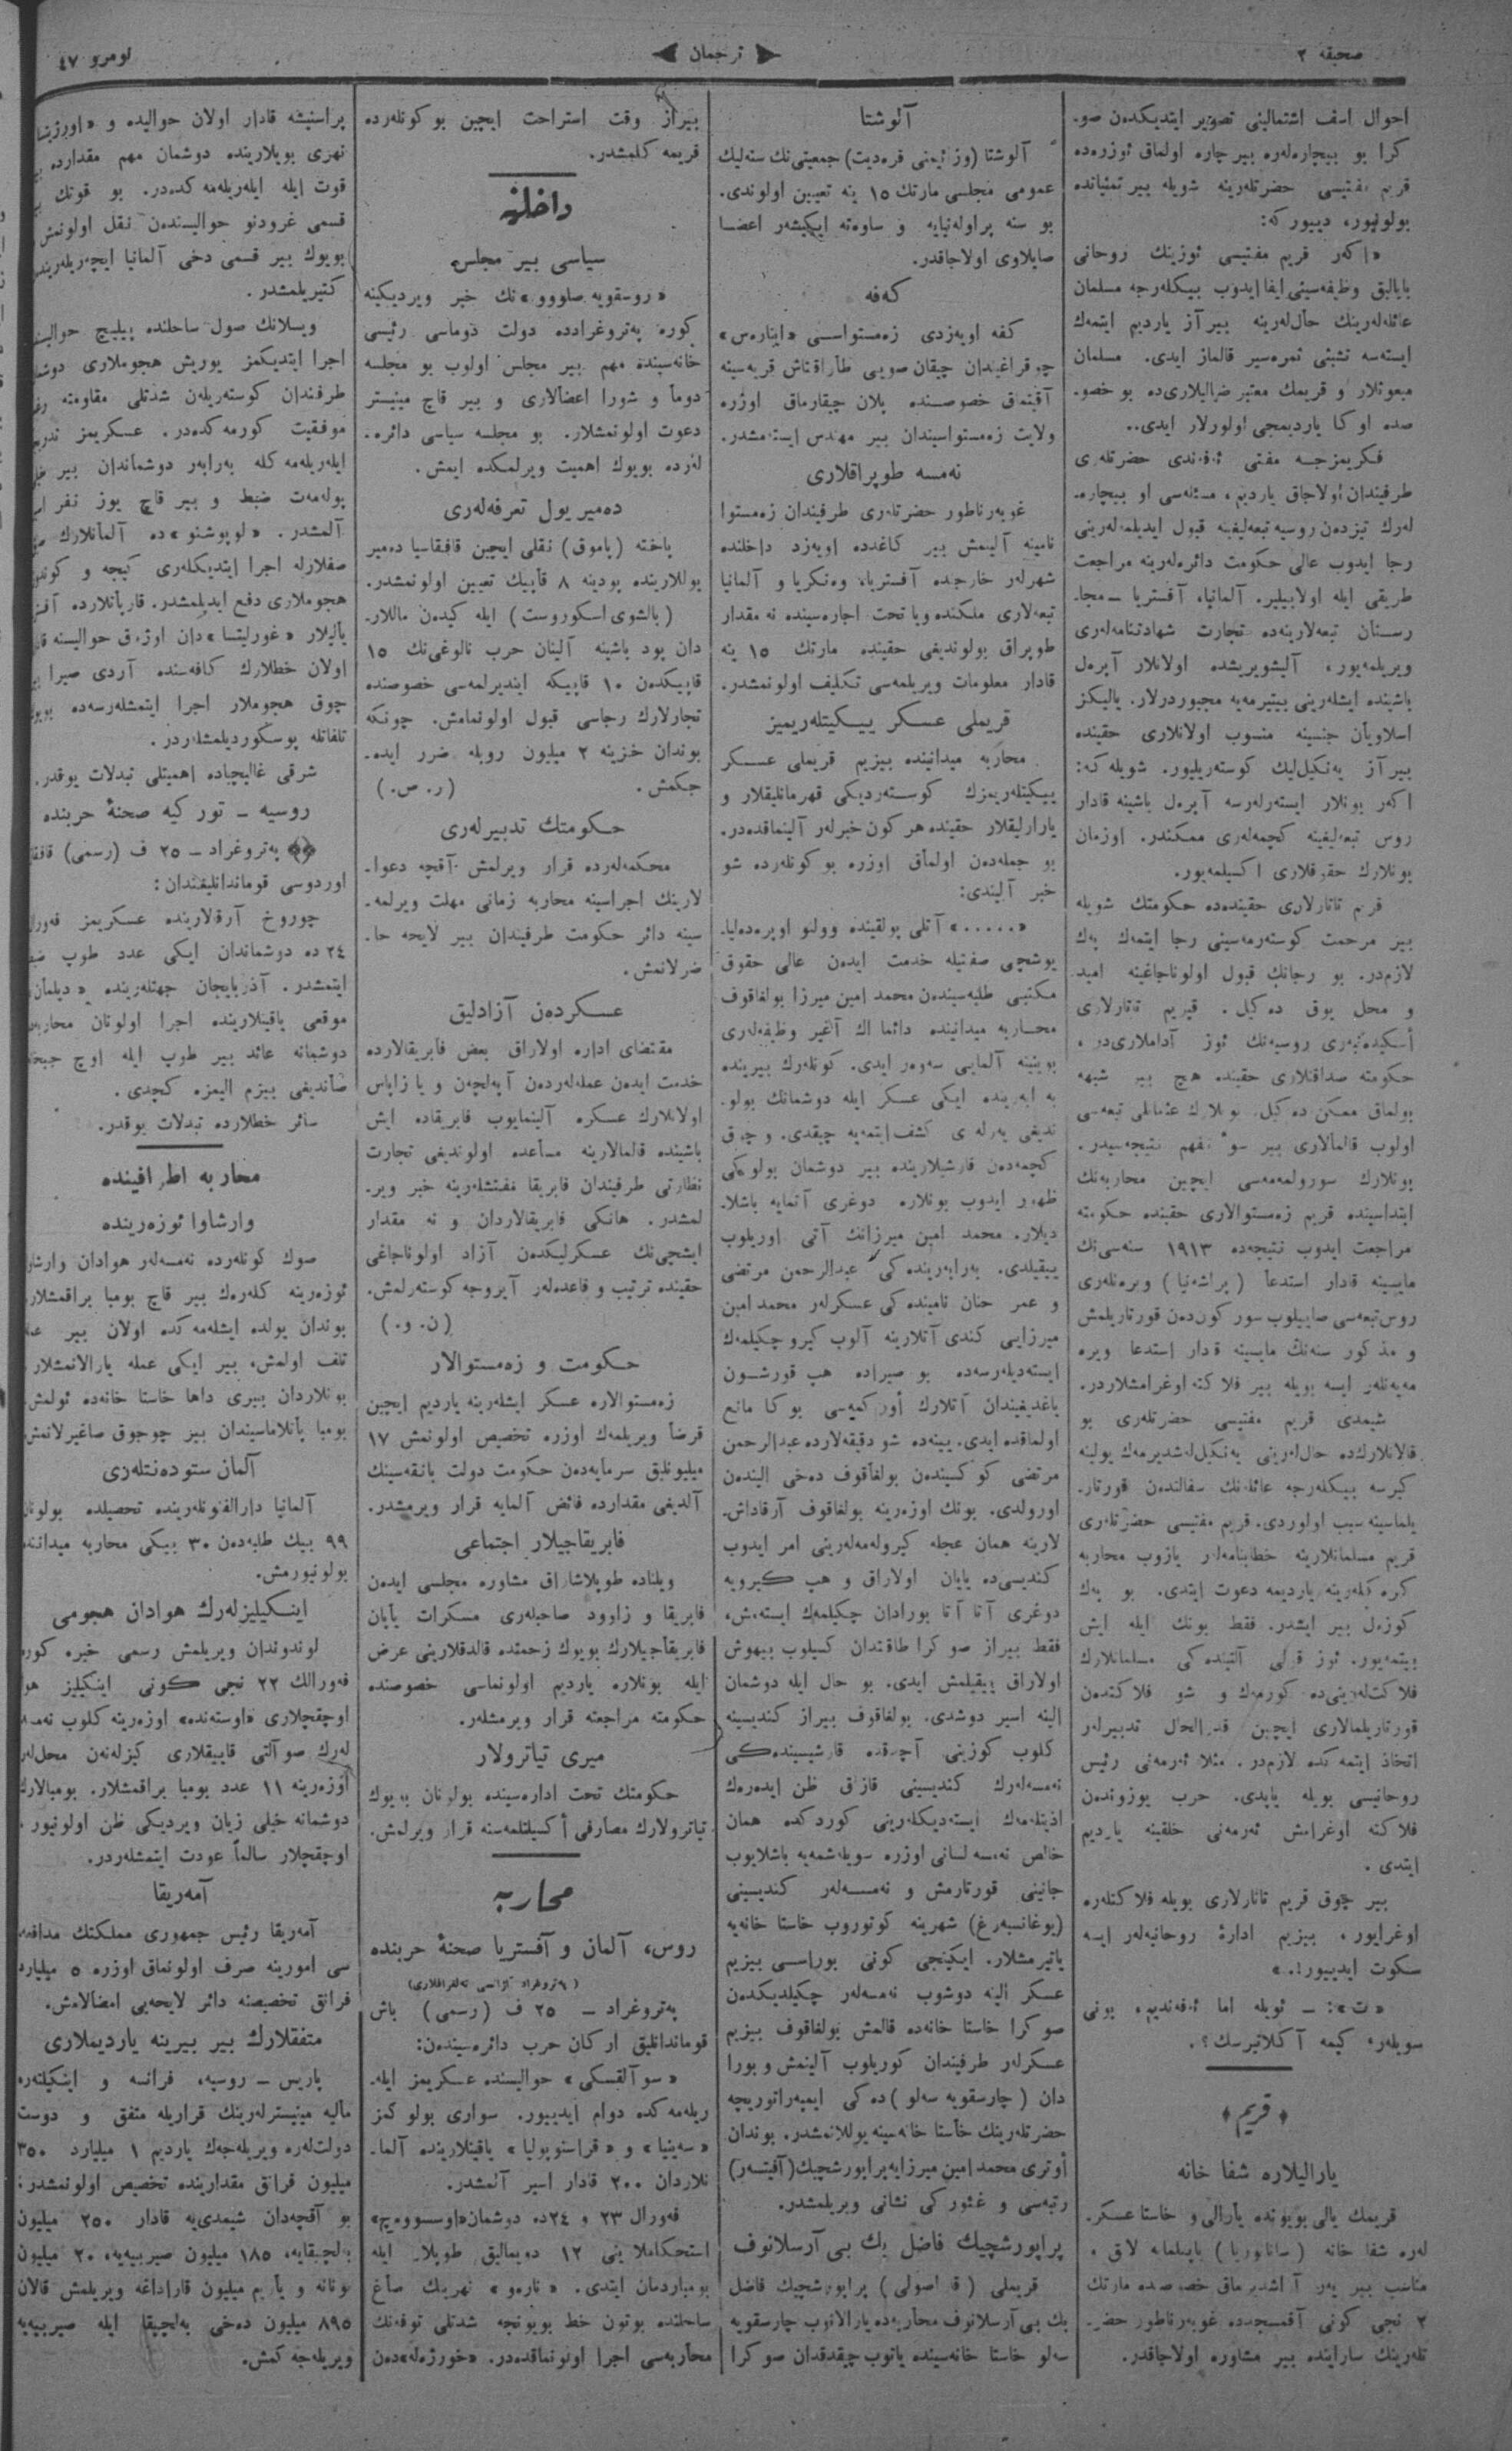 صحیفه ٢
ترجمان
نومرو ٤٧
احوال اسف اشتمالینی تصویر ایتدیکدەن صو-
کرا بو بیچارەلەرە بیر چارە اولماق ئوزرەدە
قریم مفتیسی حضرتلەرینه شویله بیر تمنیاندە
بولونیور، دییور که:
«اکەر قریم مفتیسی ئوزینك روحانی
بابالیق وظیفەسینی ایفا ایدوب بیکلەرجه مسلمان
عائلەلەرینك حاللەرینه بیر آز یاردیم ایتمەك
ایستەسه تشبثی ثمرەسیز قالماز ایدی. مسلمان
مبعوثلار و قریمك معتبر ضیالیلاری‌ده بو خصو-
صده اوکا یاردیمجی اولورلار ایدی..
فکریمزجه مفتی ئەفندی حضرتلەری
طرفیندان اولاجاق یاردیم، مسئلەسی او بیچارە-
لەرك تیزدەن روسیه تبعەلیغنه قبول ایدیلمەلەرینی
رجا ایدوب عالی حکومت دائرەلەرینه مراجعت
طریقی ایله اولابیلیر. آلمانیا، آفستریا ــ مجا-
رستان تبعەلارینەدە تجارت شهادتنامەلەری
ویریلمەیور، آلیشویریشدە اولانلار آپرەل
باشیندە ایشلەرینی بیتیرمەیه مجبوردرلار. یالیکز
اسلاویان جنسینه منسوب اولانلاری حقیندە
بیر آز یەنکیل‌لیك کوستەریلیور. شویله که:
اکەر بونلار ایستەرلەرسه آپرەل باشینه قادار
روس تبعەلیغینه کچمەلەری ممکندر. اوزمان
بونلارك حقوقلاری اکسیلمەیور.
قریم تاتارلاری حقیندەدە حکومتك شویله
بیر مرحمت کوستەرمەسینی رجا ایتمەك پەك
لازمدر. بو رجانك قبول اولوناجاغینه امید
و محل یوق دەکیل. قیریم تاتارلاری
أسکیدەنبەری روسیەنك ئوز آداملاری‌در،
حکومته صداقتلاری حقیندە هیچ بیر شبهه
بولماق ممکن دەکیل. بونلارك عثمانلی تبعەسی
اولوب قالمالاری بیر سوء تفهم نتیجەسیدر.
بونلارك سورولمەمەسی ایچین محاربەنك
ابتداسیندە قریم زەمستوالاری حقیندە حکومته
مراجعت ایدوب نتیجەدە ١٩١٣ سنەسی‌نك
مایسینه قادار استدعا (پراشەنیا) ویرەنلەری
روس تبعەسی صاییلوب سورکون‌دەن قورتاریلمش
و مذکور سنەنك مایسینه قدار استدعا ویرە
مەیەنلەر ایسه بویله بیر فلاکته اوغرامشلاردر.
شیمدی قریم مفتیسی حضرتلەری بو
قالانلارك‌دە حاللەرینی یەنکیل‌لەشدیرمەك یولینه
کیرسه بیکلەرجه عائلەنك سفالتدەن قورتار-
یلماسینه سبب اولوردی. قریم مفتیسی حضرتلەری
قریم مسلمانلارینه خطابنامەلەر یازوب محاربه
کرەکلەرینه یاردیمه دعوت ایتدی. بو پەك
کوزەل بیر ایشدر. فقط بونك ایله ایش
بیتمەیور. ئوز قولی آلتیندەکی مسلمانلارك
فلاکت‌لەرینی‌دە کورمەك و شو فلاکتدەن
قورتاریلمالاری ایچین قدر الحال تدبیرلەر
اتخاذ ایتمەکدە لازمدر. مثلا ئەرمەنی رئیس
روحانیسی بویله یاپدی. حرب یوزوندەن
فلاکته اوغرامش ئەرمەنی خلقینه یاردیم
ایتدی.
بیر چوق قریم تاتارلاری بویله فلاکتلەرە
اوغرایور، بیزیم ادارۀ روحانیەلەر ایسه
سکوت ایدییور!.»
«ت»: ــ ئویله اما ئەفەندیم، بونی
سویلەر، کیمه آکلاتیرسك؟.
﴿قریم﴾
یارالیلارە شفا خانه
قریمك یالی بویوندە یارالی و خاستا عسکر-
لەرە شفا خانه (سانانوریا) یاپیلمغه لایق،
مناسب بیر یەر آراشدیرماق خصوصدە مارتك
٢ نجی کونی آقمسجددە غوبەرناطور حضر-
تلەرینك سارایندە بیر مشاورە اولاجاقدر.
آلوشتا
آلوشتا (وزائیمنی قرەدیت) جمعیتی‌نك سنەلیك
عمومی مجلسی مارتك ١٥ ینه تعیین اولوندی.
بو سنه پراولەنیایه و ساوەته ایکیشەر اعضا
صایلاوی اولاجاقدر.
کەفه
کفه اویەزدی زەمستواسی «ایتارەس»
چوقراغیندان چیقان صویی طاراقتاش قریەسینه
آقیتماق خصوصندە پلان چیقارماق اوزرە
ولایت زەمستواسیندان بیر مهندس ایستەمشدر.
نەمسه طوپراقلاری
غوبەرناطور حضرتلەری طرفیندان زەمستوا
نامینه آلینمش بیر کاغددە اویەزد داخلندە
شهرلەر خارجدە آفستریا، وەنکریا و آلمانیا
تبعەلاری ملکندە ویا تحت اجارەسیندە نه مقدار
طوپراق بولوندیغی حقیندە مارتك ١٥ ینه
قادار معلومات ویریلمەسی تکلیف اولونمشدر.
قریملی عسکر ییکیتلەریمیز
محاربه میدانیندە بیزیم قریملی عسکر
ییکیتلەریمزك کوستەردیکی قهرمانلیقلار و
یارارلیقلار حقیندە هر کون خبرلەر آلینماقدەدر.
بو جملەدەن اولماق اوزرە بو کونلەردە شو
خبر آلیندی:
«.....» آتلی پولقیندە وولنو اوپرەدەلیا-
یوشچی صفتیله خدمت ایدەن عالی حقوق
مکتبی طلبەسیندەن محمد امین میرزا بولغاقوف
محاربه میدانیندە دائما اك آغیر وظیفەلەری
بوینینه آلمایی سەوەر ایدی. کونلەرك بیریندە
بەرابەریندە ایکی عسکر ایله دوشمانك بولو-
ندیغی یەرلەری کشف ایتمەیه چیقدی. و چوق
کچمەدەن قارشیلاریندە بیر دوشمان بولوکی
ظهور ایدوب بونلارە دوغری آتمایه باشلا-
دیلار. محمد امین میرزانك آتی اوریلوب
ییقیلدی. بەرابەریندەکی عبدالرحمن مرتضی
و عمر حنان نامیندەکی عسکرلەر محمد امین
میرزایی کندی آتلارینه آلوب کیرو چکیلمەك
ایستەدیلەرسەدە بو صیرادە هپ قورشون
یاغدیغیندان آتلارك أورکمەسی بوکا مانع
اولماقدە ایدی. بینەدە شو دقیقەلاردە عبدالرحمن
مرتضی کوکسیندەن بولغاقوف دەخی الیندەن
اورولدی. بونك اوزەرینه بولغاقوف آرقاداش-
لارینه همان عجله کیرولەمەلەرینی امر ایدوب
کندیسی‌دە یایان اولاراق و هپ کیرویه
دوغری آتا آتا بورادان چکیلمەك ایستەمش،
فقط بیراز صوکرا طاقتدان کسیلوب بیهوش
اولاراق ییقیلمش ایدی. بو حال ایله دوشمان
الینه اسیر دوشدی. بولغاقوف بیراز کندیسینه
کلوب کوزینی آچدقدە قارشیسیندەکی
نەمسەلەرك کندیسینی قازاق ظن ایدەرەك
اذیتلەمەك ایستەدیکلەرینی کوردکدە همان
خالص نەمسه لسانی اوزرە سویلەشمەیه باشلایوب
جانینی قورتارمش و نەمسەلەر کندیسینی
(یوغانسبەرغ) شهرینه کوتوروب خاستا خانەیه
یاتیرمشلار. ایکینجی کونی بوراسی بیزیم
عسکر الینه دوشوب نەمسەلەر چکیلدیکدەن
صوکرا خاستا خانەدە قالمش بولغاقوف بیزیم
عسکرلەر طرفیندان کوریلوب آلینمش و بورا
دان (چارسقویه سەلو)دەکی ایمپەراتوریچه
حضرتلەرینك خاستا خانەسینه یوللانمشدر. بوندان
أوتری محمد امین میرزایه پراپورشچیك (آفیتسەر)
رتبەسی و غئورکی نشانی ویریلمشدر.
پراپورشچیك فاضل بك بی آرسلانوف
قریملی (قاراصولی) پراپورشچیك فاضل
بك بی آرسلانوف محاربەدە یارالانوب چارسقویه
سەلو خاستا خانەسیندە یاتوب چیقدقدان صوکرا
بیراز وقت استراحت ایچین بو کونلەردە
قریمه کلمشدر.
داخلیه
سیاسی بیر مجلس
«روسقویه صلووو»نك خبر ویردیکینه
کورە پەتروغراددە دولت دوماسی رئیسی
خانەسیندە مهم بیر مجلس اولوب بو مجلسه
دوما و شورا اعضالاری و بیر قاچ مینیستر
دعوت اولونمشلار. بو مجلسه سیاسی دائرە-
لەردە بویوك اهمیت ویرلمکدە ایمش.
دەمیر یول تعرفەلەری
پاخته (پاموق) نقلی ایچین قافقاسیا دەمیر
یوللاریندە پودینه ٨ قاپیك تعیین اولونمشدر.
(بالشوی اسکوروست) ایله کیدەن ماللار-
دان پود باشینه آلینان حرب نالوغی‌نك ١٥
قاپیکدەن ١٠ قاپیکه ایندیرلمەسی خصوصندە
تجارلارك رجاسی قبول اولونمامش. چونکه
بوندان خزینه ٢ میلیون روبله ضرر ایدە-
جکمش. (ر. ص.)
حکومتك تدبیرلەری
محکمەلەردە قرار ویرلمش آقچه دعوا-
لارینك اجراسینه محاربه زمانی مهلت ویرلمە-
سینه دائر حکومت طرفیندان بیر لایحه حا-
ضرلانمش.
عسکردەن آزادلیق
مقتضای ادارە اولاراق بعض فابریقالاردە
خدمت ایدەن عملەلەردەن آپەلچەن و یا زاپاس
اولانلارك عسکرە آلینمایوب فابریقادە ایش
باشیندە قالمالارینه مساعدە اولوندیغی تجارت
نظارتی طرفیندان فابریقا مفتشلەرینه خبر ویر-
لمشدر. هانکی فابریقالاردان و نه مقدار
ایشچی‌نك عسکرلیکدەن آزاد اولوناجاغی
حقیندە ترتیب و قاعدەلەر آیروجه کوستەرلمش.
(ن. و.)
حکومت و زەمستوالار
زەمستوالارە عسکر ایشلەرینه یاردیم ایچین
قرضاً ویریلمەك اوزرە تخصیص اولونمش ١٧
میلیونلیق سرمایەدەن حکومت دولت بانقەسینك
آلدیغی مقداردە فائض آلمایه قرار ویرمشدر.
فابریقاجیلار اجتماعی
ویلنادە طوپلاشاراق مشاورە مجلسی ایدەن
فابریقا و زاوود صاحبلەری مسکرات یاپان
فابریقاجیلارك بویوك زحمتدە قالدقلارینی عرض
ایله بونلارە یاردیم اولونماسی خصوصندە
حکومته مراجعته قرار ویرمشلەر.
میری تیاترولار
حکومتك تحت ادارەسیندە بولونان بویوك
تیاترولارك مصارفی أکسیلتلمەسنه قرار ویرلمش.
محاربه
روس، آلمان و آفستریا صحنۀ حربندە
(پەتروغراد آژانسی تەلغرافلاری)
پەتروغراد ــ ٢٥ ف (رسمی) باش
قوماندانلیق ارکان حرب دائرەسیندەن:
«سوآلقسکی» حوالیسندە عسکریمز ایله-
ریلەمەکدە دوام ایدییور. سواری بولوکمز
«سەینیا» و «قراسنوپولیا» یاقینلاریندە آلما-
نلاردان ٢٠٠ قادار اسیر آلمشدر.
فەورال ٢٣ و ٢٤دە دوشمان «اوسسووەیچ»
استحکاملاینی ١٢ دویمالیق طوپلار ایله
بومباردمان ایتدی. «نارەو» نهرینك صاغ
ساحلندە بوتون خط بویونجه شدتلی توفەنك
محاربەسی اجرا اولونماقدەدر. «خورژەلە»دەن
پراسنیشه قادار اولان حوالیدە و «اورژیتسا
نهری بویلاریندە دوشمان مهم مقداردە
قوت ایله ایلەریلەمەکدەدر. بو قوتك
قسمی غرودنو حوالیسندەن نقل اولونمش
بویوك بیر قسمی دخی آلمانیا ایچەریلەریندەن
کتیریلمشدر.
ویسلانك صول ساحلندە پیلیچ حوالیسندە
اجرا ایتدیکمز یوریش هجوملاری دوشمان
طرفندان کوستەریلەن شدتلی مقاومته
موفقیت کورمەکدەدر. عسکریمز
ایلەریلەمەکله بەرابەر دوشماندان بیر
پولەمەت ضبط و بیر قاچ یوز نفر اسیر
آلمشدر. «لوپوشنو»دە آلمانلارك
صفلارله اجرا ایتدیکلەری کیجه و کوندوز
هجوملاری دفع ایدیلمشدر. قارپاتلاردە
یالیلار «غورلیتسا»دان اوژوق حوالیسنه قادار
اولان خطلارك کافەسندە آردی صیرا بیر
چوق هجوملار اجرا ایتمشلەرسەدە بویوك
تلفاتله پوسکوردیلمشلەردر.
شرقی غالیچیادە اهمیتلی تبدلات یوقدر.
روسیه ــ تورکیه صحنۀ حربندە
پەتروغراد ــ ٢٥ ف (رسمی)
اوردوسی قوماندانلیغندان:
چوروخ آرقلاریندە عسکریمز فەورال
٢٤ دە دوشماندان ایکی عدد طوپ ضبط
ایتمشدر. آذربایجان جهتلەریندە «دیلمان»
موقعی یاقینلاریندە اجرا اولونان محاربەدە
دوشمانه عائد بیر طوپ ایله اوچ جبخانه
صاندیغی بیزیم الیمزە کچدی.
سائر خطلاردە تبدلات یوقدر.
محاربه اطرافیندە
وارشاوا ئوزەریندە
صوك کونلەردە نەمسەلەر هوادان وارشاوا
ئوزەرینه کلەرەك بیر قاچ بومبا براقمشلار.
بوندان یولدە ایشلەمەکدە اولان بیر عمله
تلف اولمش، بیر ایکی عمله یارالانمشلار.
بونلاردان بیری داها خاستا خانەدە ئولمش.
بومبا پاتلاماسیندان بیر چوجوق صاغیرلانمش.
آلمان ستودەنتلەری
آلمانیا دارالفنونلەریندە تحصیلدە بولونان
٩٩ بیك طلبەدەن ٣٠ بیکی محاربه میدانندە
بولونیورمش.
اینکیلیزلەرك هوادان هجومی
لوندوندان ویریلمش رسمی خبرە کورە
فەورالك ٢٢ نجی کونی اینکیلیز هوا
اوچقچلاری «اوستەندە» اوزەرینه کلوب نەمسه
لەرك صو آلتی قاییقلاری کیزلەنەن محللەر
اوزەرینه ١١ عدد بومبا براقمشلار. بومبالارك
دوشمانه خیلی زیان ویردیکی ظن اولونیور،
اوچقچلار سالماً عودت ایتمشلەردر.
آمەریقا
آمەریقا رئیس جمهوری مملکتك مدافعە-
سی امورینه صرف اولونماق اوزرە ٥ میلیارد
فرانق تخصیصنه دائر لایحەیی امضالامش.
متفقلارك بیر بیرینه یاردیملاری
پاریس ــ روسیه، فرانسه و اینکیلتەرە
مالیه مینیسترلەرینك قراریله متفق و دوست
دولت‌لەرە ویریلەجەك یاردیم ١ میلیارد ٣٥٠
میلیون فرانق مقداریندە تخصیص اولونمشدر:
بو آقچەدان شیمدی‌یه قادار ٢٥٠ میلیون
بەلچیقایه، ١٨٥ میلیون صیربیەیه، ٢٠ میلیون
یونانه و یاریم میلیون قاراداغه ویریلمش قالان
٨٩٥ میلیون دەخی بەلچیقا ایله صیربیەیه
ویریلەجەکمش.